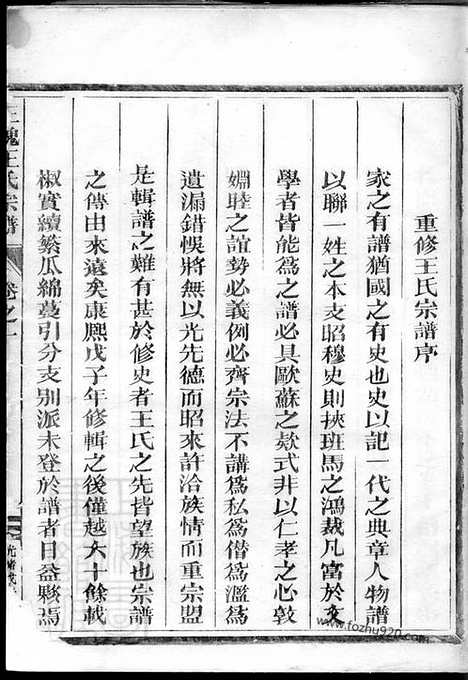 重修王氏宗譜序
家之有譜猶國之有史也史以記一代之典章人物譜
以聯一姓之本支昭穆史則挾班馬之鴻裁凡富於文
學者皆能為之譜必具歐蘇之欵式非以仁孝之心敦
婣睦之誼勢必義例必齊宗法不講為私為僭為濫為
遺漏錯悞將無以光先德而昭來許洽族情而重宗盟
是輯譜之難有甚於修史者王氏之先皆望族也宗譜
之傳由來遠矣康熙戊子年修輯之後僅越六十餘載
椒實續繁瓜綿蔓引分支別派未登於譜者日益夥焉
槐王氏宗譜
卷之一
光緒戊
www.fozhu920.com